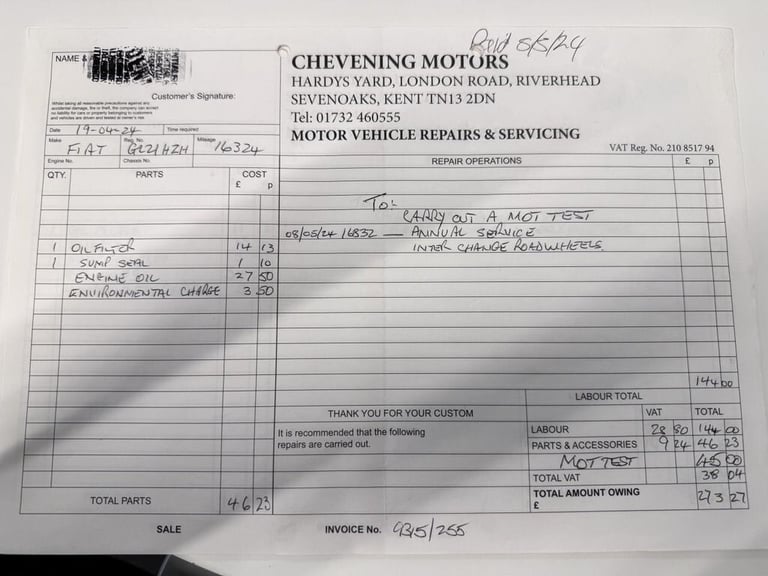 Paid 8/5/24
NAME &
CHEVENING MOTORS
HARDYS YARD, LONDON ROAD, RIVERHEAD
SEVENOAKS, KENT TN13 2DN
Tel: 01732 460555
MOTOR VEHICLE REPAIRS & SERVICING
VAT Reg. No. 210 8517 94
Customer's Signature:
Whilst taking all reasonable precautions against any
accidental damage, fire or theft, the company can accept
no liability for cars or property belonging to customers
and vehicles are driven and tested at owner's risk.
Date 19-04-24 Time required
Make FIAT Reg. No. Mileage 16324
Engine No. Chassis No.
QTY. PARTS COST
£ p
REPAIR OPERATIONS £ p
To:-
CARRY OUT A MOT TEST
08/05/24 16832 — ANNUAL SERVICE
INTER CHANGE ROADWHEELS.
1 OIL FILTER 14 13
1 SUMP SEAL 1 10
ENGINE OIL 27 50
ENVIRONMENTAL CHARGE 3 50
144 00
LABOUR TOTAL
THANK YOU FOR YOUR CUSTOM
VAT TOTAL
It is recommended that the following
repairs are carried out.
LABOUR 28 80 144 00
PARTS & ACCESSORIES 9 24 46 23
MOT TEST 45 00
TOTAL VAT 38 04
TOTAL AMOUNT OWING
£ 273 27
TOTAL PARTS 46 23
SALE INVOICE No.